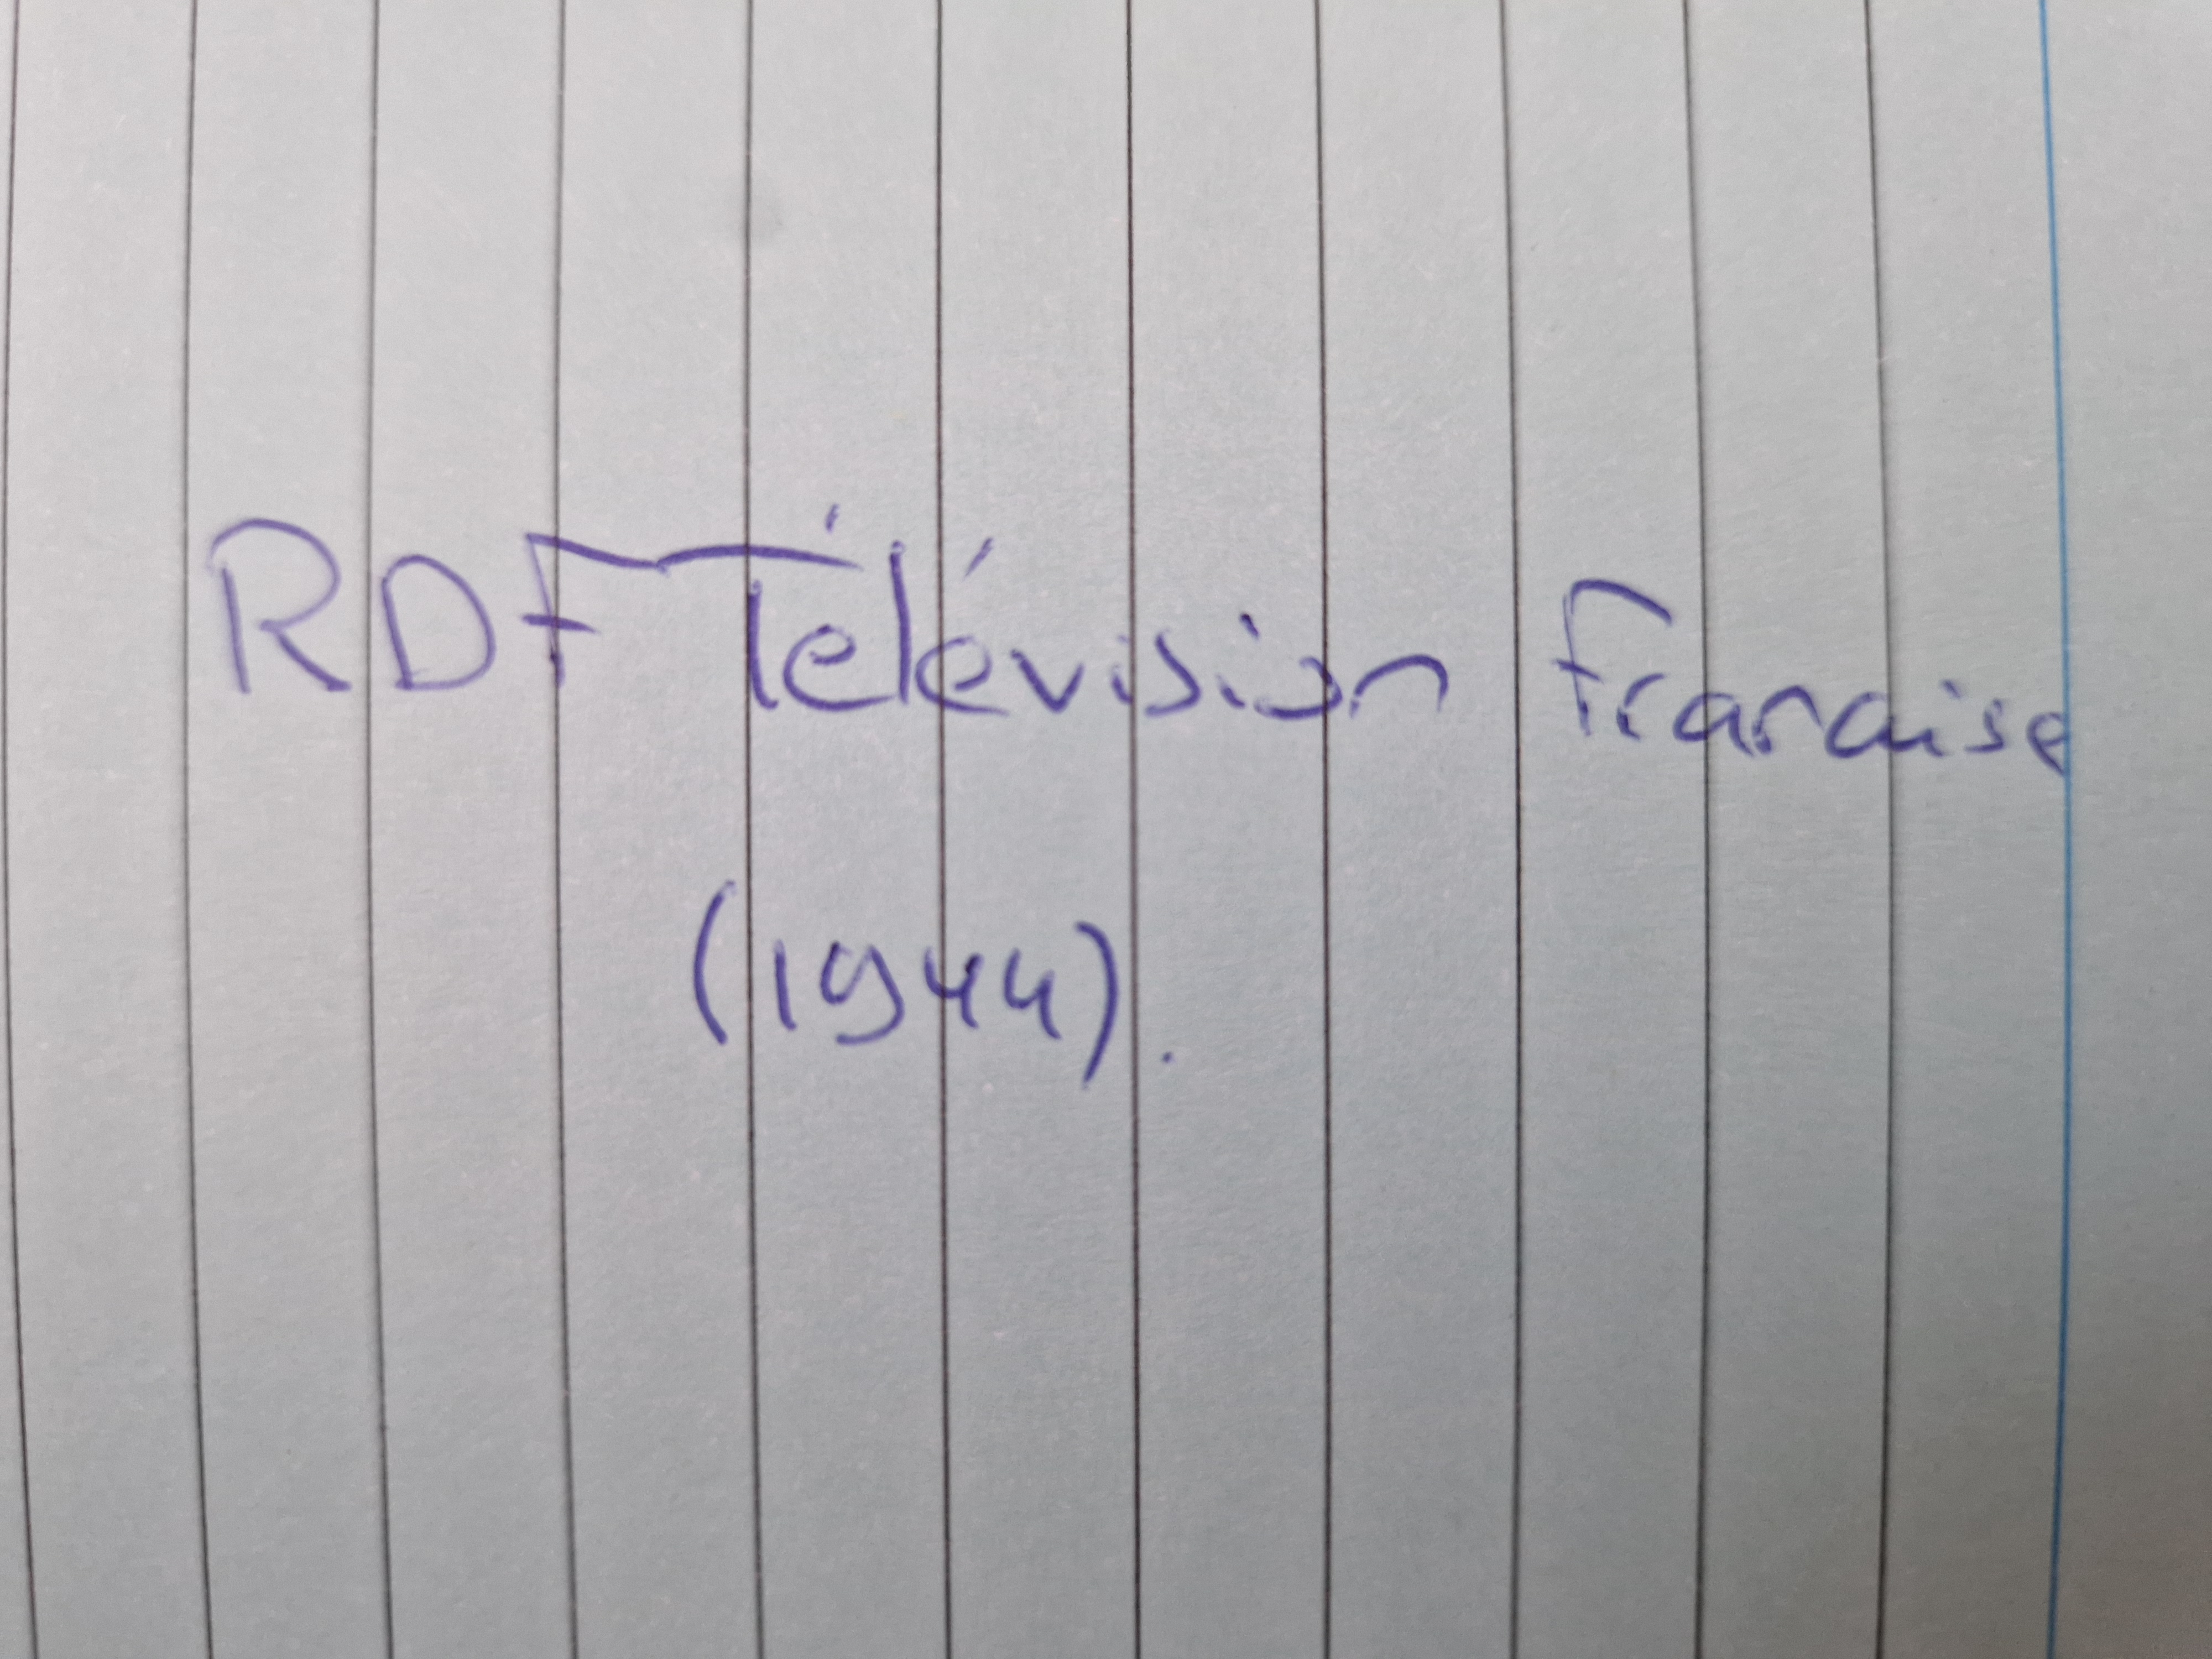 RDF Télévision Franaise
(1944)